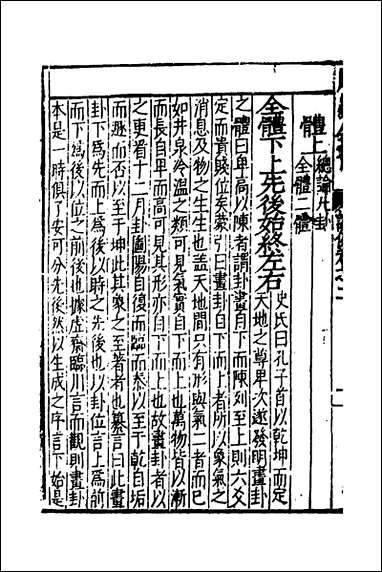 體上 總論八卦
全體二體
全體下上先後始終左右 史氏曰孔子首以乾坤而定
天地之尊卑次遂發明畫卦
之體曰卑高以陳者謂卦畫自下而陳列至上則六爻
定而貴賤位矣蒙引曰畫卦自下而上者所以象氣之
消息及物之生生也盖天地間只有形與氣二者而已
如井泉冷溫之類可見氣實自下而上也萬物皆以漸
而長自卑而高可見其形亦自下而上也故畫卦者以
之更看十二月卦圖陽自復而臨而泰以至于乾自垢
而遯而否以至于坤此其象之至著者也纂言曰此畫
卦下為先而上為後以時之先後也以卦位言上為前
而下為後以位之前後也據虛齋臨川言而觀則畫卦
本是一時俱了安可分先後然以生成之序言下始是